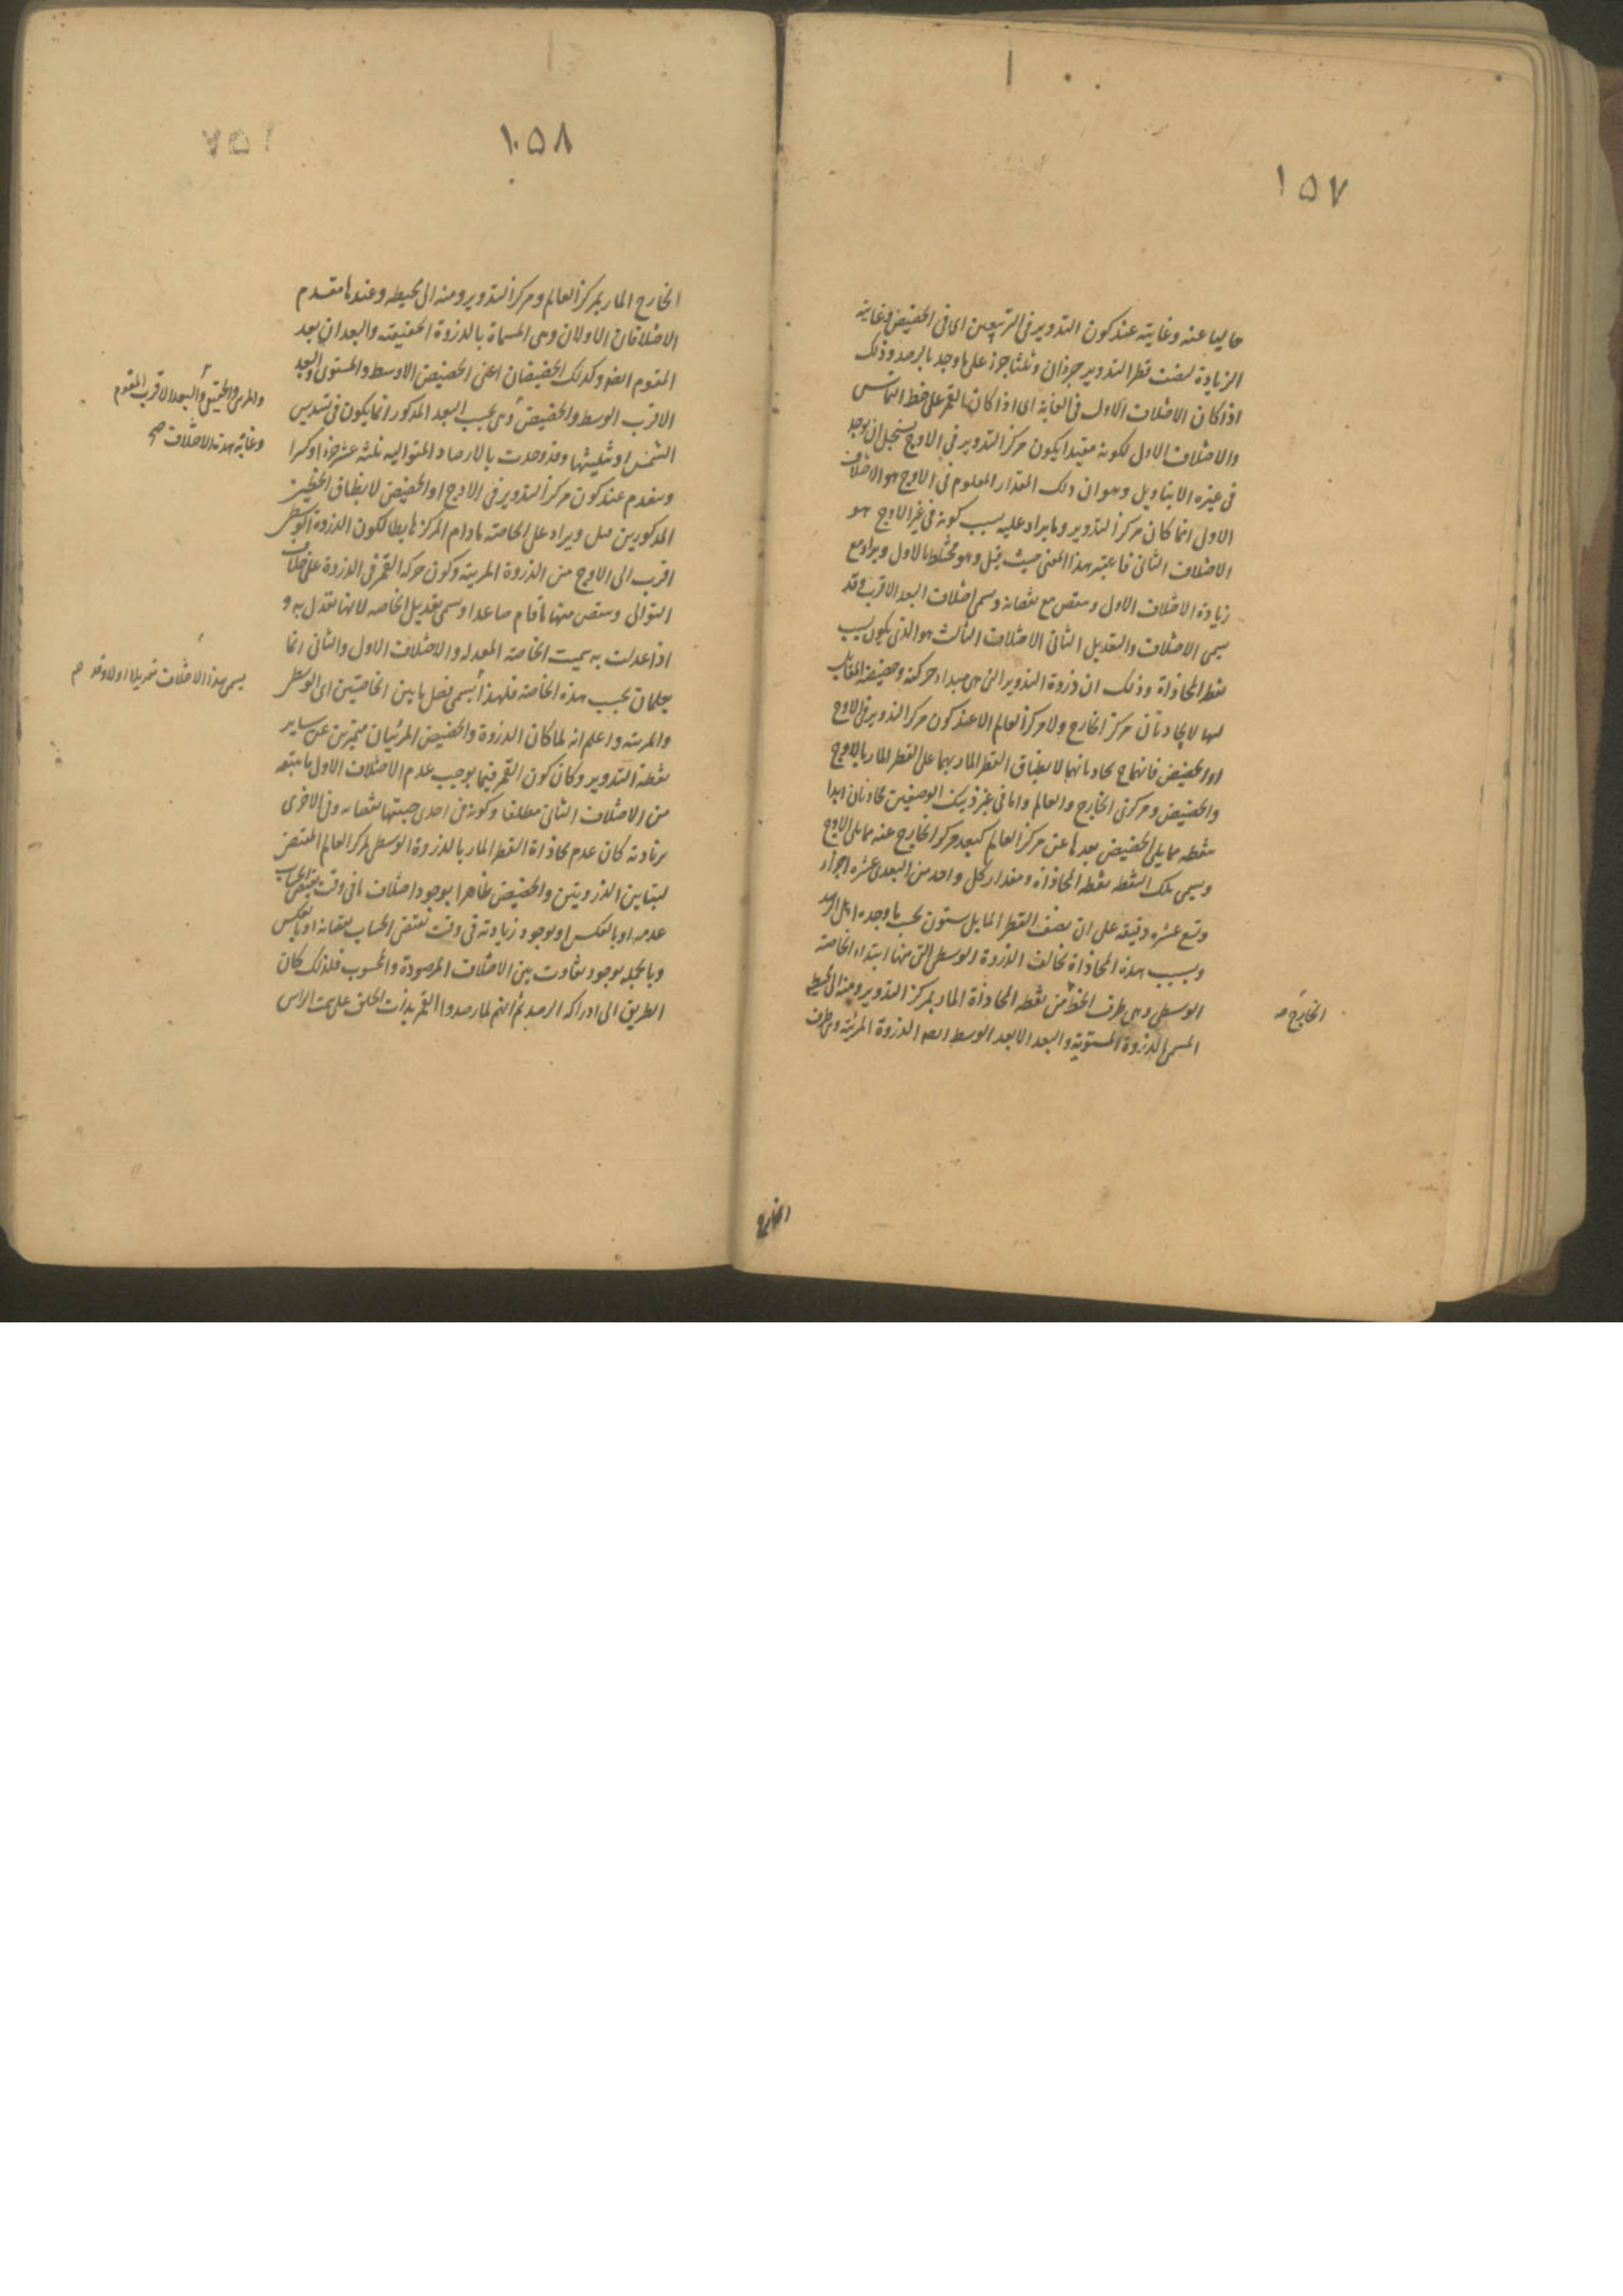 ١٥٧
حاليا عنه وغايته عند كون التدوير فى التربيعين اى فى الحضيض وغاية
الزيادة لنصف قطر التدوير جزءان وثلثا جزء على ما وجد بالرصد وذلك
اذا كان الاختلاف الاول فى الغاية اى اذا كان القمر على خط التماس
والاختلاف الاول لكونه مقيدا بكون مركز التدوير فى الاوج يستحيل ان يوجد
فى غيره الا بتاويل وهو ان ذلك المقدار المعلوم فى الاوج هو الاختلاف
الاول انما كان مركز التدوير وما يزاد عليه بسبب كونه فى غير الاوج هو
الاختلاف الثانى فاعتبر هذا المعنى حيث قيل وهو مختلط بالاول ويزاد مع
زيادة الاختلاف الاول وينقص مع نقصانه ويسمى اختلاف البعد الاقرب وقد
يسمى الاختلاف والتعديل الثانى الاختلاف الثالث هو الذى يكون بسبب
نقطة المحاذاة وذلك ان ذروة التدوير التى هى مبداء حركته وحضيضه المقابل
لها لا يحاذيان مركز الخارج ولا مركز العالم الا عند كون مركز التدوير فى الاوج
او الحضيض فانهما ح يحاذيانهما لانطباق القطر المار بهما على القطر المار بالاوج
والحضيض ومركزى الخارج والعالم واما فى غير ذينك الوضعين يحاذيان ابدا
نقطة مما يلى الحضيض بعدها عن مركز العالم كبعد مركز الخارج عنه مما يلى الاوج
ويسمى تلك النقطة نقطة المحاذاة ومقدار كل واحد من البعدين عشرة اجزاء
وتسع عشره دقيقة على ان نصف القطر المايل ستون بحسب ما وجده اهل الرصد
وبسبب هذه المحاذاة تخالف الذروة الوسطى التى منها ابتداء الخاصة
الوسطى وهى طرف الخط من نقطة المحاذاة المار بمركز التدوير ومنه الى محيطه
الخارج صه
المسمى الذروة المستوية والبعد الابعد الوسط ايضا الذروة المرئية وهى طرف
الخارج
١٠٥٨
١٥٨
الخارج المار بمركز العالم ومركز التدوير ومنه الى محيطه وعندها ينعدم
الاختلافان الاولان وهى المسماة بالذروة الحقيقية والبعد الابعد
المقوم ايضا وكذلك الحضيضان اعنى الحضيض الاوسط والمستوى والبعد
والمرئى والحقيقى والبعد الاقرب المقوم
وغاية هذا الاختلاف صح
الاقرب الوسط والحضيض وهى بحسب البعد المذكور انما يكون فى تسديس
الشمس او تثليثها وقد وجدت بالارصاد المتواليه ثلثة عشر جزءا وكسرا
وينعدم عند كون مركز التدوير فى الاوج او الحضيض لانطباق الخطين
المذكورين ويزاد على الخاصة مادام المركز هابطا لكون الذروة الوسطى
اقرب الى الاوج من الذروة المرئية وكون حركة القمر فى الذروة على خلاف
التوالى وينقص منها مادام صاعدا ويسمى تعديل الخاصه لانها تعدل به و
اذا عدلت به سميت الخاصة المعدله والاختلاف الاول والثانى انما
يسمى هذا الاختلاف تعديلا اولا
يعلمان بحسب هذه الخاصة فلهذا يسمى فضل ما بين الخاصتين اى الوسطى
والمرئية واعلم انه لما كان الذروة والحضيض المرئيان متميزين عن ساير
نقطة التدوير وكان كون القمر فيهما يوجب عدم الاختلاف الاول بما يتبعه
من الاختلاف الثانى مطلقا وكونه فى احدى جهتيها نقصانه وفى الاخرى
زيادته كان عدم محاذاة القطر المار بالذروة الوسطى لمركز العالم المقتضى
لتباين الذروتين والحضيض ظاهرا بوجود اختلاف ما فى وقت يقتضى الحساب
عدمه او بالعكس او بوجود زيادته فى وقت تقتضى الحساب نقصانه او بالعكس
وبالجمله بوجود تفاوت بين الاختلاف المرصودة والمحسوب فلذلك كان
الطريق الى ادراكه الرصد ثم انهم لما رصدوا القمر بذات الحلق على سمت الراس